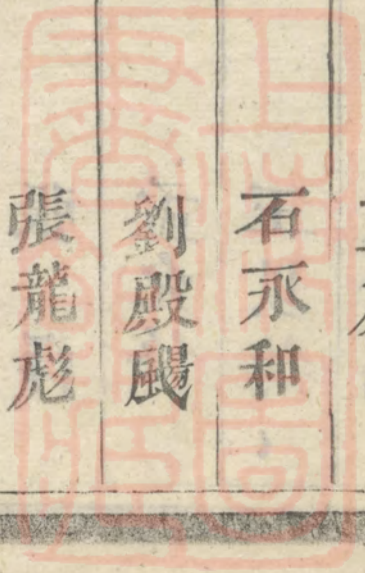 石永和
劉殿颺
張龍彪